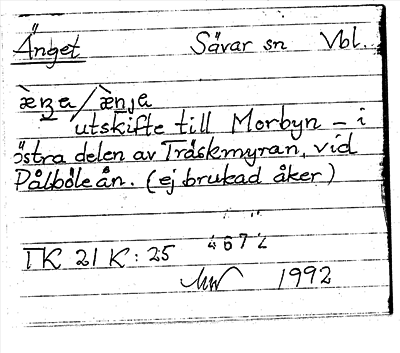 Änget Sävar sn Vbl.
æ̀nʒa/æ̀nja
utskifte till Morbyn – i
östra delen av Träskmyran, vid
Pålböleån. (ej brukad åker)
4672
TK 21 K: 25
1992